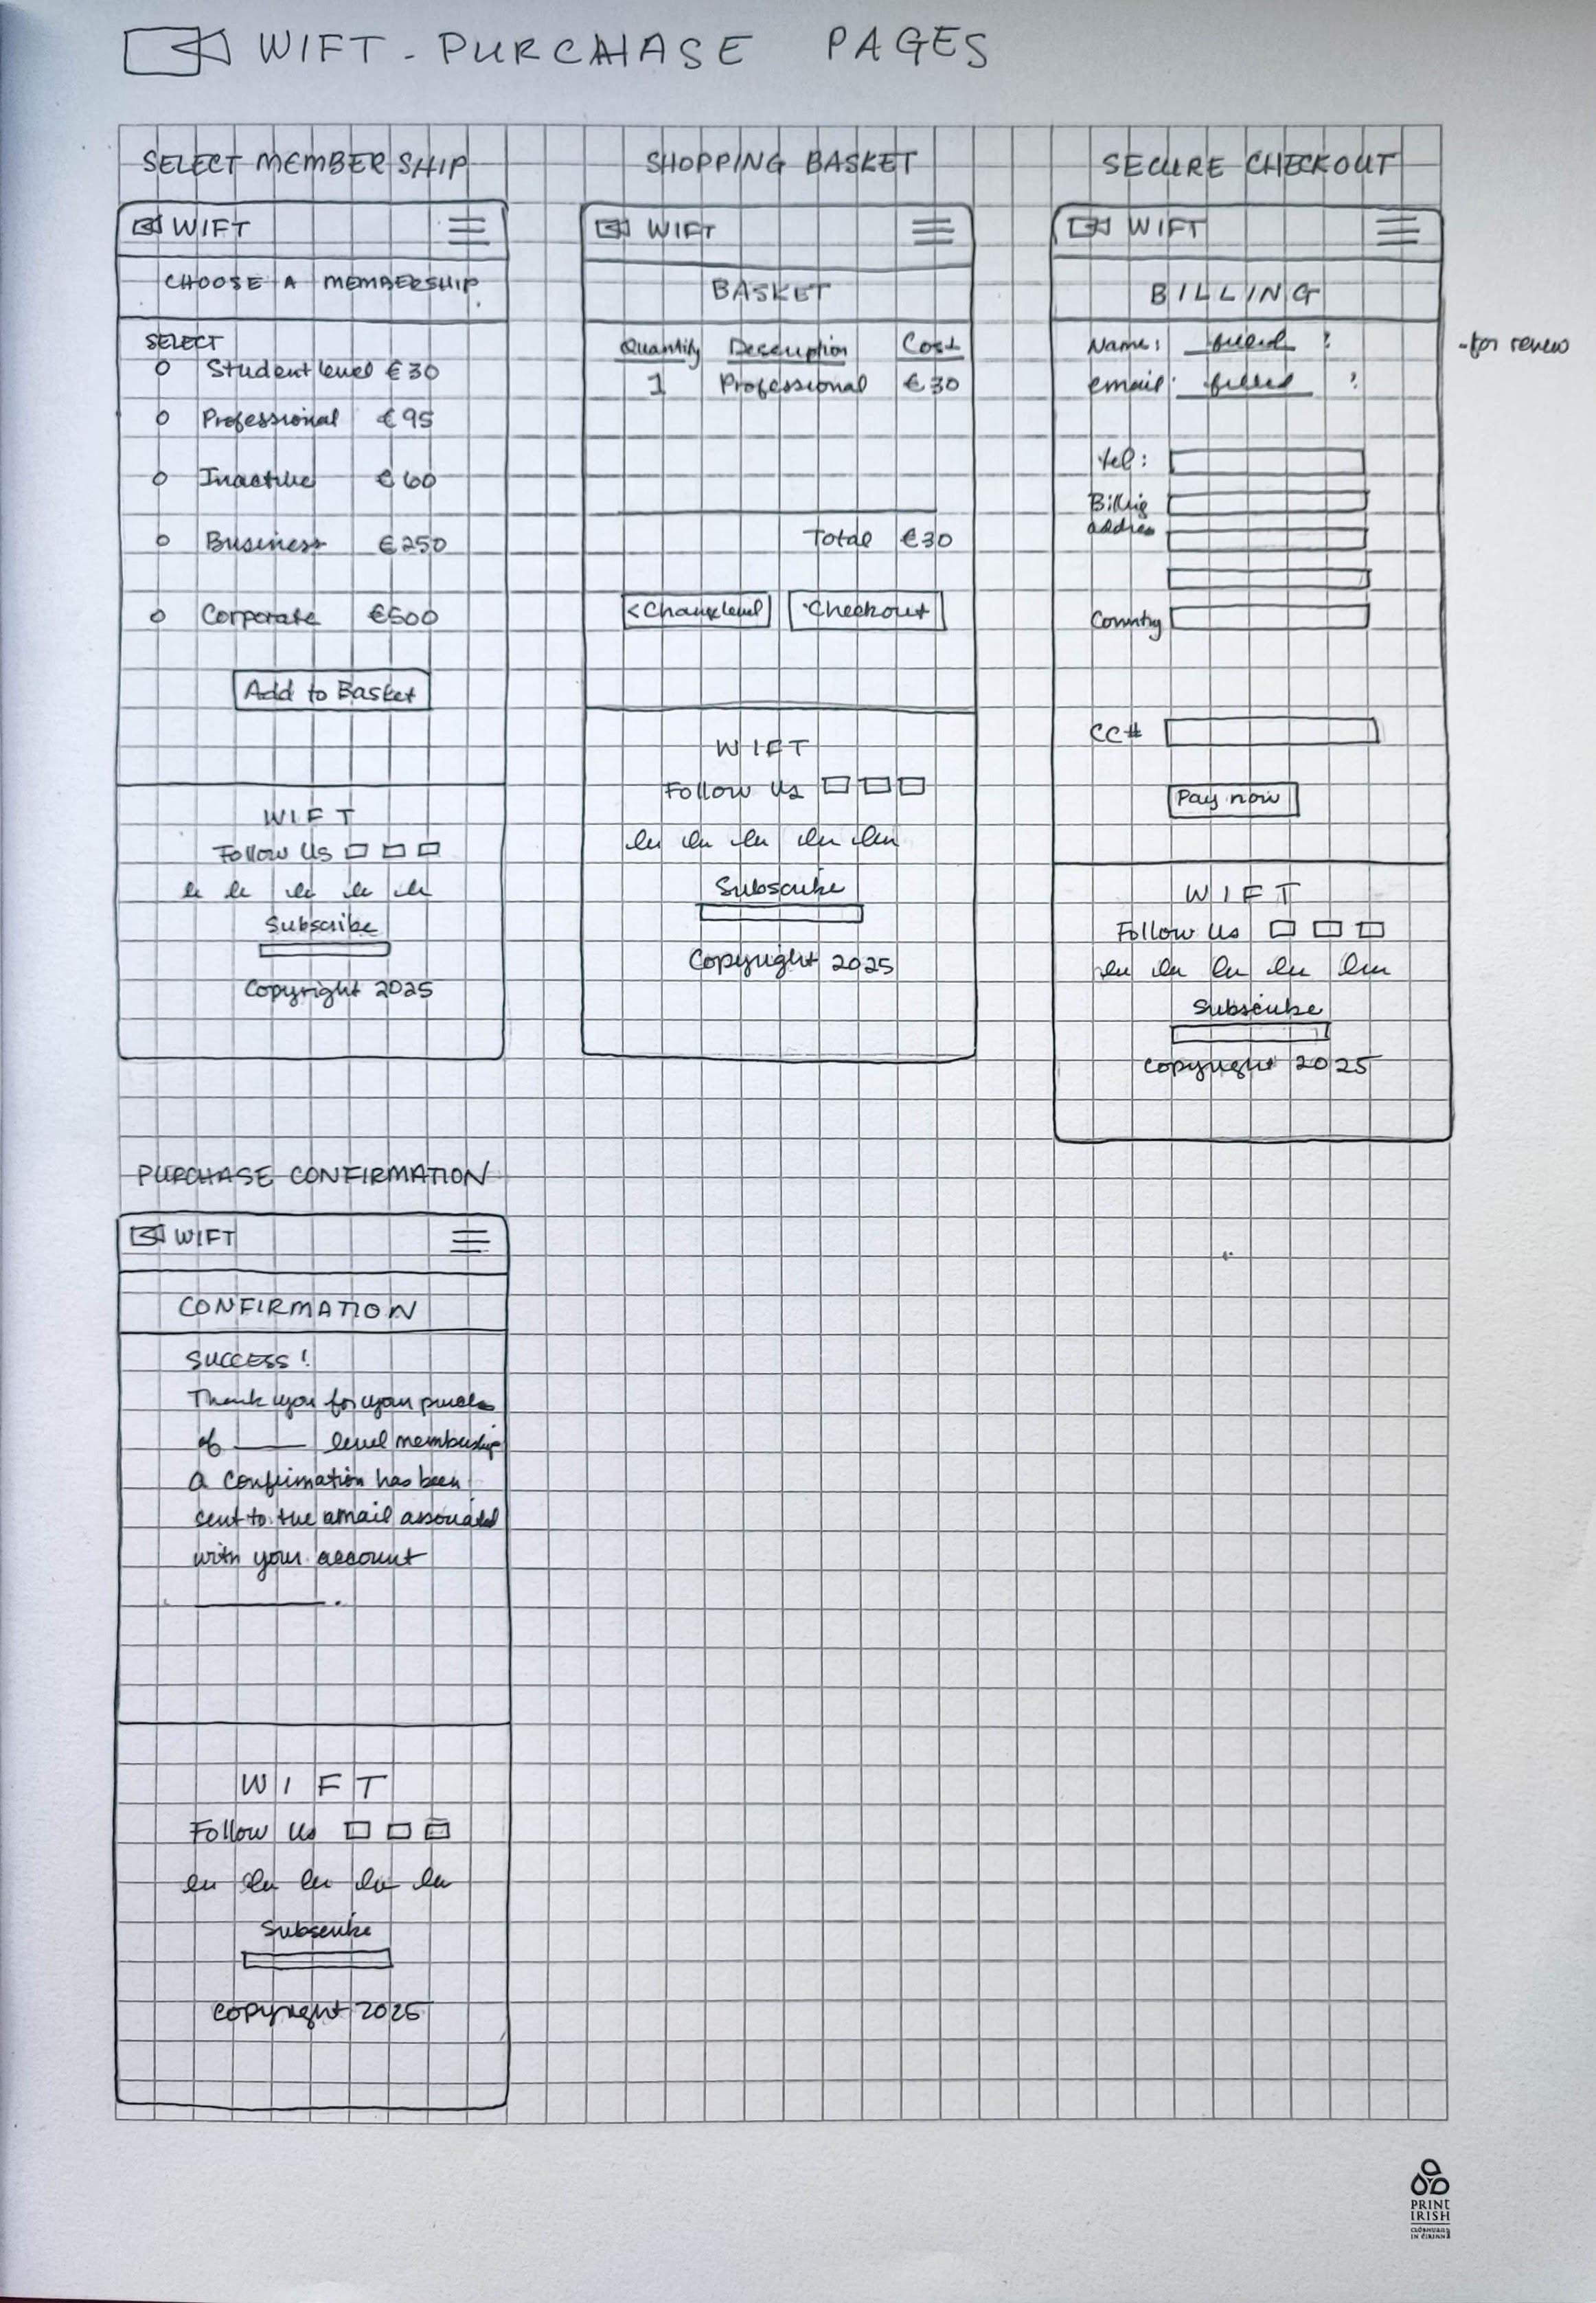 WIFT - PURCHASE PAGES
SELECT MEMBERSHIP
WIFT
CHOOSE A MEMBERSHIP
SELECT
Student level €30
Professional €95
Inactive €60
Business €250
Corporate €500
Add to Basket
WIFT
Follow Us
Subscribe
Copyright 2025
SHOPPING BASKET
WIFT
BASKET
Quantity Description Cost
1 Professional €30
Total €30
<Change level Checkout
WIFT
Follow Us
Subscribe
Copyright 2025
SECURE CHECKOUT
WIFT
BILLING
Name: filled ?
email: filled ?
-for renew
tel:
Billing
address
Country
CC#
Pay now
WIFT
Follow Us
Subscribe
Copyright 2025
PURCHASE CONFIRMATION
WIFT
CONFIRMATION
SUCCESS!
Thank you for your
of level membership
a confirmation has been
sent to the email associated
with your account
WIFT
Follow Us
Subscribe
Copyright 2025
PRINT
IRISH
CLÓBHUAIL
IN ÉIRINN